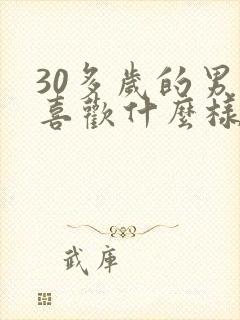 30多歲的男
喜歡什麼樣
武庫